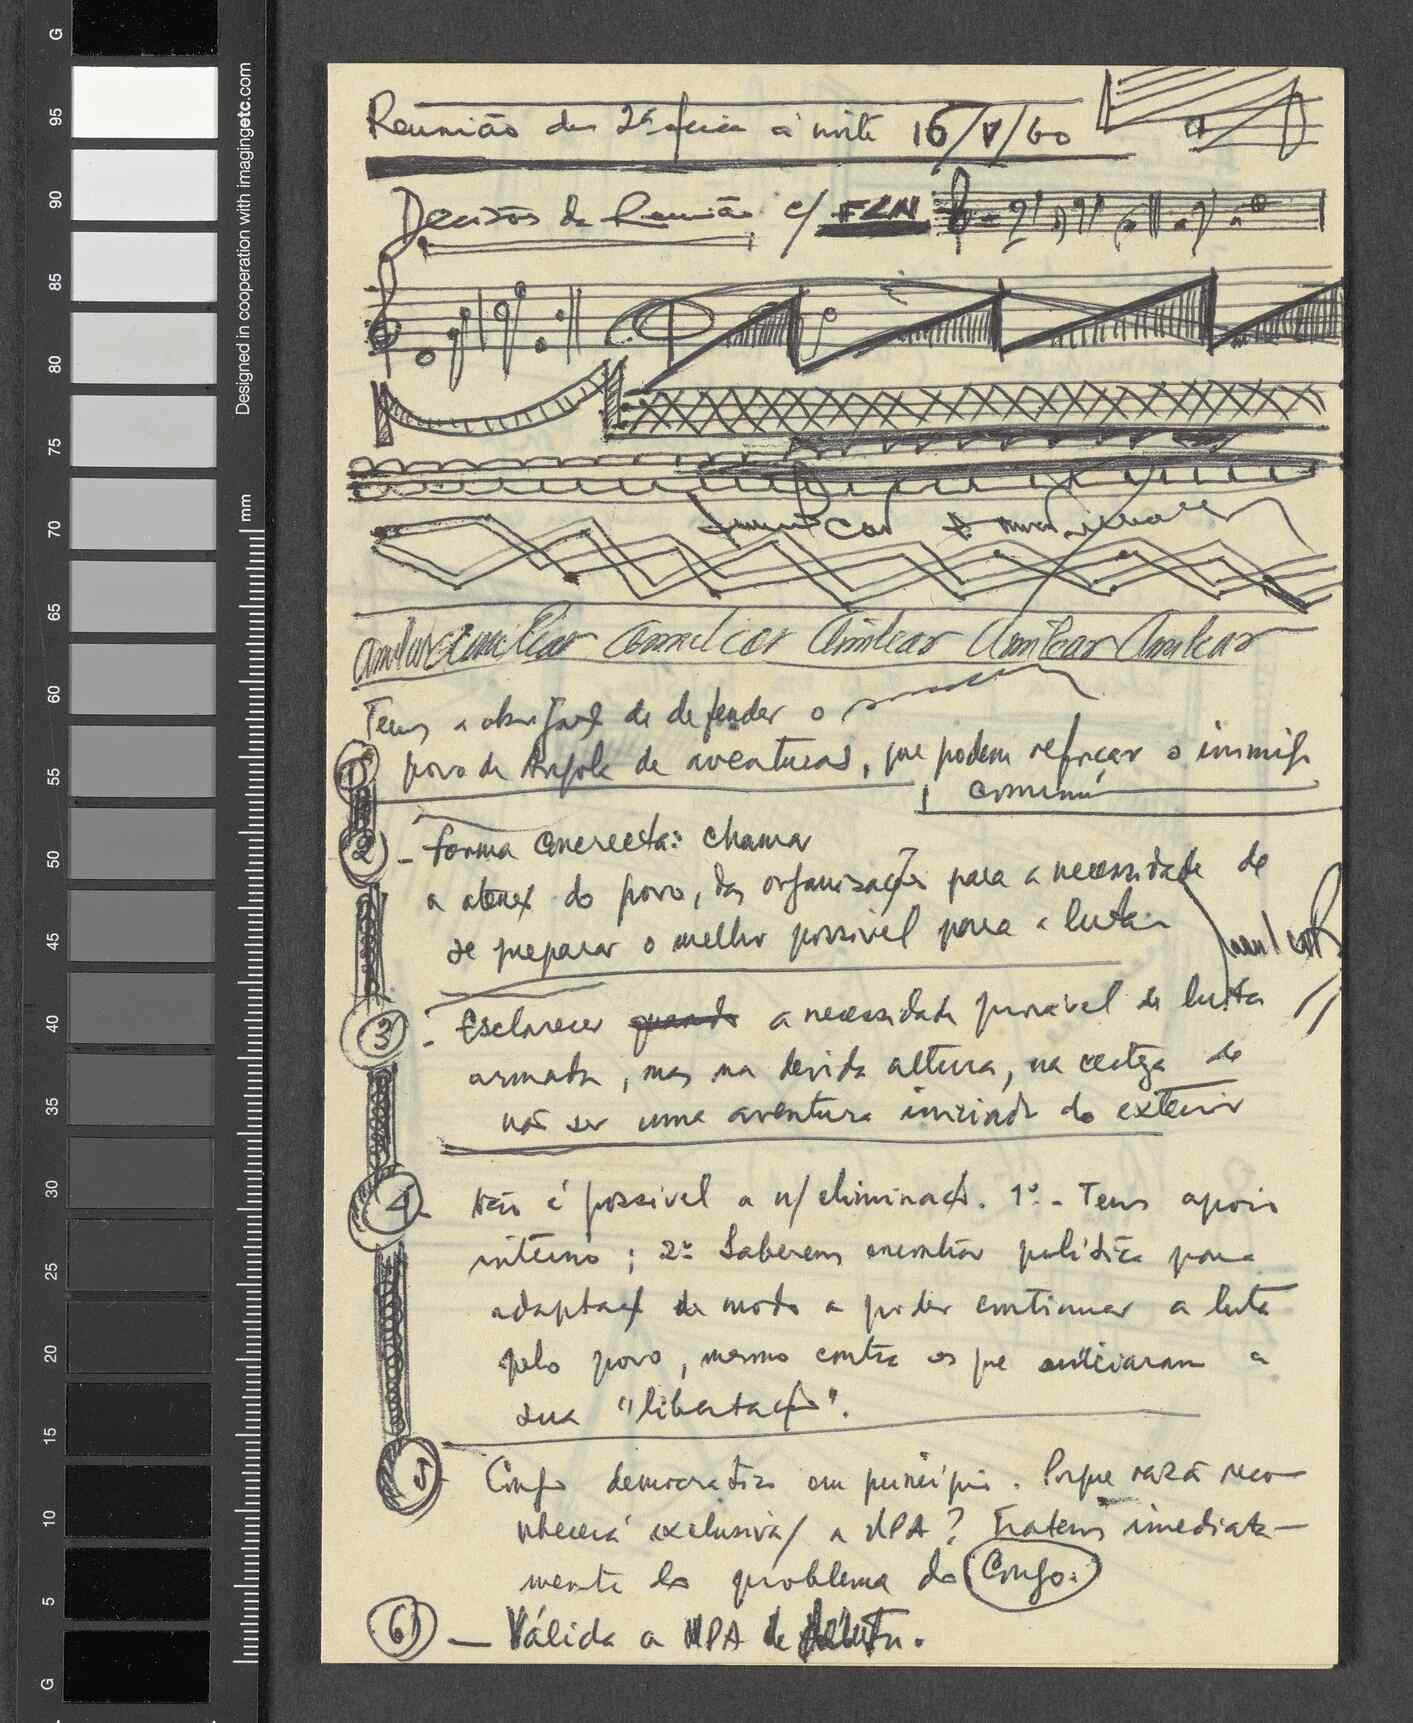 Reunião de 2ª feira à noite 16/V/60
Decisões da Reunião c/ FLN
Amilcar Amilcar
Amilcar Amilcar Amilcar Amilcar Amilcar Amilcar
Temos a obrigação de defender o
1) povo de Angola de aventuras, que podem reforçar o inimigo
comum
2 - Forma concreta: chamar
a atenç do povo, das organizações para a necessidade de
se preparar o melhor possível para a luta
Amilcar
3 - Esclarecer quando a necessidade provável de luta
armada, mas na devida altura, na certeza de
não ser uma aventura iniciada do exterior
4 - Não é possível a n/ eliminação. 1º - Temos apoio
interno; 2º Saberemos encontrar política para
adaptaç de modo a poder continuar a luta
pelo povo, mesmo contra os que iniciaram a
sua "libertação".
5 - Congo democrático em princípio. Porque razão reco-
nhecerá exclusiva/ a UPA? Tratemos imediata-
mente do problema do Congo.
6) - Válida a UPA de
Designed in cooperation with imagingetc.com
mm
G
95
90
85
80
75
70
65
60
55
50
45
40
35
30
25
20
15
10
5
G